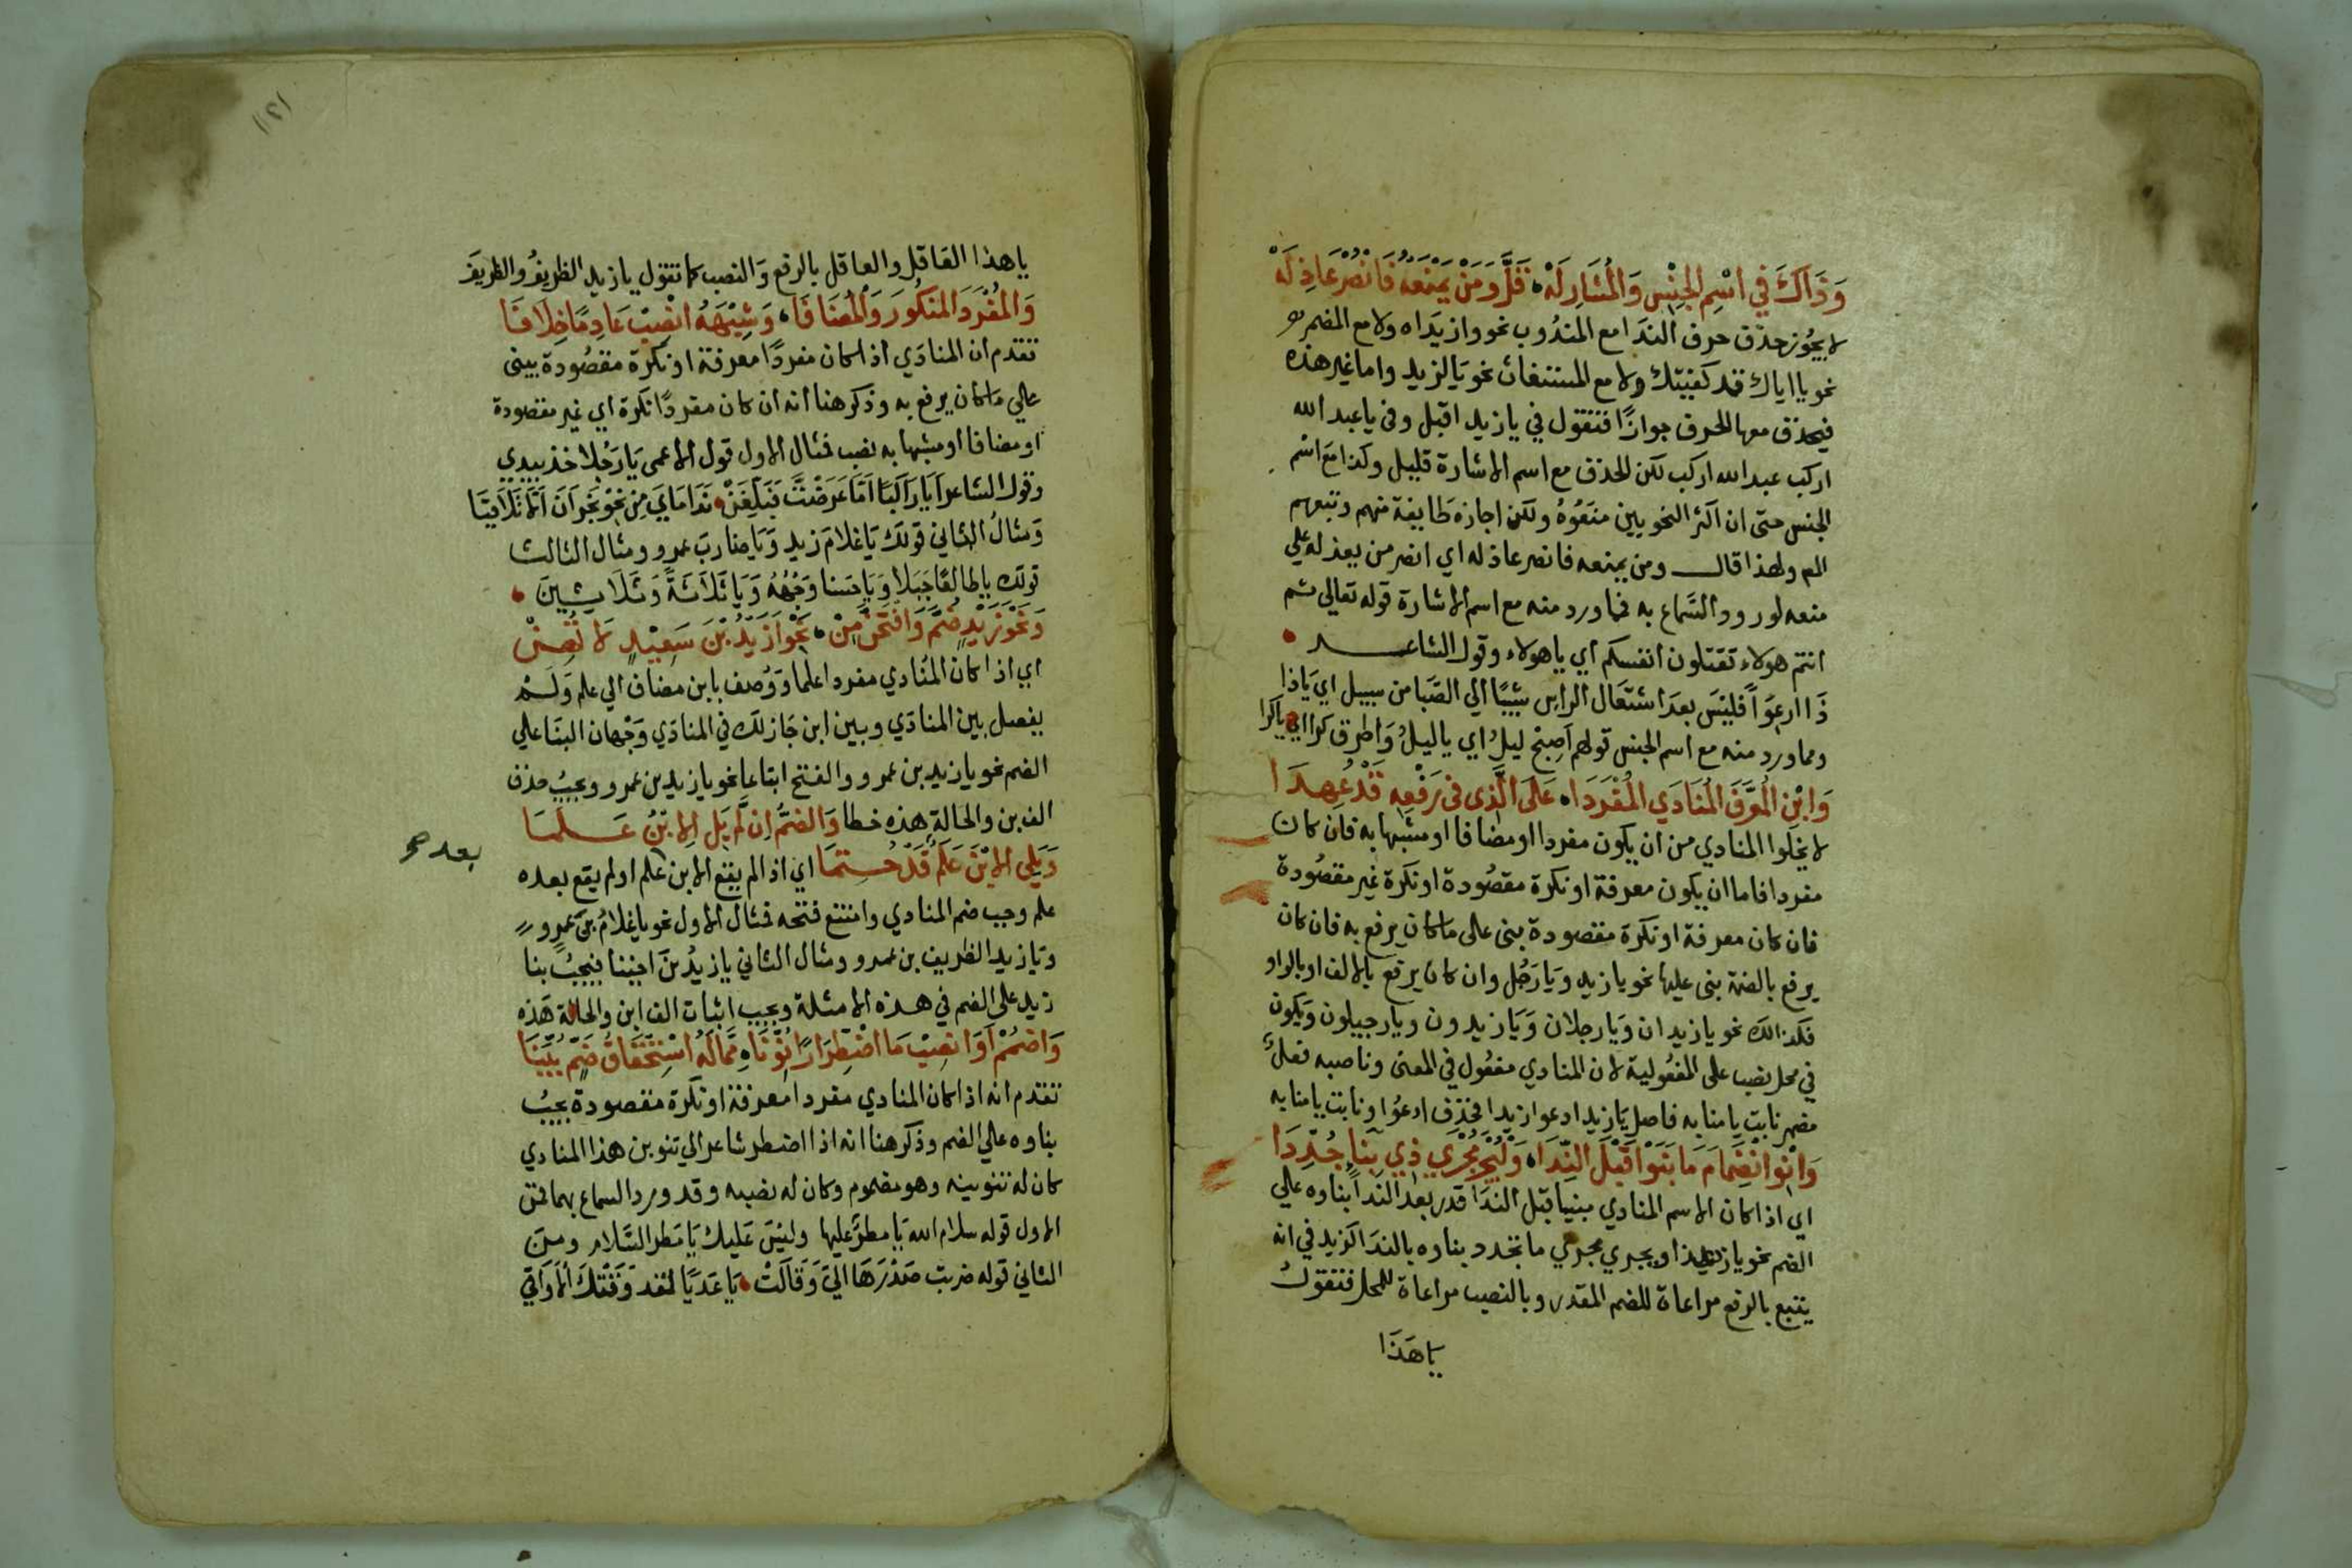 وَذَاكَ فِي اسْمِ الجِنْسِ وَالْمُشَارِ لَهْ قَلَّ وَمَنْ يَمْنَعْهُ فَانْصُرْ عَاذِلَهْ
لا يجوز حذف حرف الندا مع المندوب نحو وازيداه ولا مع المضمر
نحو يا اياك قد كفيتك ولا مع المستغاث نحو يا لزيد واما غير هذه
فيحذف معها الحرف جوازا فتقول في يا زيد اقبل وفي يا عبد الله
اركب عبد الله اركب لكن الحذف مع اسم الاشارة قليل وكذا مع اسم
الجنس حتى ان اكثر النحويين منعوه ولكن اجازه طايفة منهم وتبعهم
المص ولهذا قال ومن يمنعه فانصر عاذله اي انصر من يعذله علي
منعه لورود السماع به فما ورد منه مع اسم الاشارة قوله تعالي ثم
انتم هولاء تقتلون انفسكم اي يا هولاء وقول الشاعر
ذَا ارعوا فليس بعد اشتعال الراس شيبا الي الصبا من سبيل اي ياذا
ومما ورد منه مع اسم الجنس قولهم اصبح ليل اي يا ليل واطرق كرا اي يا كرا
وَابْنِ الْمُعَرَّفَ الْمُنَادَي الْمُفْرَدَا عَلَى الَّذِي فِي رَفْعِهِ قَدْ عُهِدَا
لا يخلوا المنادي من ان يكون مفردا او مضافا او مشبها به فان كان
مفردا فاما ان يكون معرفة او نكرة مقصودة او نكرة غير مقصودة
فان كان معرفة او نكرة مقصودة بني على ما كان يرفع به فان كان
يرفع بالضمة بني عليها نحو يا زيد ويا رجل وان كان يرفع بالالف او بالواو
فكذالك نحو يا زيدان ويا رجلان ويا زيدون ويا رجيلون ويكون
في محل نصب على المفعولية لان المنادي مفعول في المعنى وناصبه فعل
مضمر نابت يا منابه فاصل يا زيد ادعوا زيدا فحذف ادعوا ونابت يا منابه
وَانْوِ انْضِمَامَ مَا بَنَوْا قَبْلَ النِّدَا وَلْيُجْرَ مُجْرَي ذِي بِنَا جُدِّدَا
اي اذا كان الاسم المنادي مبنيا قبل الندا قدر بعد الندا بناوه علي
الضم نحو يا هذا ويجري مجري ما تجدد بناوه بالندا كزيد في انه
يتبع بالرفع مراعاة للضم المقدر وبالنصب مراعاة للمحل فتقول
يا هَذَا
يا هذا العاقل والعاقل بالرفع والنصب كما تقول يا زيد الظريفُ والظريفَ
وَالمُفْرَدَ المَنكُورَ وَالْمُضَافَا وَشِبْهَهُ انْصِبْ عَادِمًا خِلَافَا
تقدم ان المنادي اذا كان مفردا معرفة او نكرة مقصودة يبنى
علي ما كان يرفع به وذكر هنا انه ان كان مفردا نكرة اي غير مقصودة
او مضافا او مشبها به نصب فمثال الاول قول الاعمى يا رجلا خذ بيدي
وقول الشاعر ايا راكبا اما عرضت فبلغن نداماي من نجران ان لا تلاقيا
ومثال الثاني قولك يا غلام زيد ويا ضارب عمرو ومثال الثالث
قولك يا طالعا جبلا ويا حسنا وجهه ويا ثلاثة وثلاثين
وَنَحْوَ زَيْدٍ ضُمَّ وَافْتَحَنَّ مِنْ نَحْوِ أَزَيْدُ بْنَ سَعِيْدٍ لَا تَهِنْ
اي اذا كان المنادي مفردا علما ووصف بابن مضاف الي علم ولم
يفصل بين المنادي وبين ابن جاز لك في المنادي وجهان البنا علي
الضم نحو يا زيد بن عمرو والفتح اتباعا نحو يا زيد بن عمرو ويجب حذف
الف بن والحالة هذه خطا وَالضَّمُّ اِن لَّمْ يَلِ الِابْنُ عَلَمَا
وَيَلِي الِابْنَ عَلَمٌ قَدْ حُتِمَا اي اذا لم يقع الابن علم او لم يقع بعده
بعد صح
علم وجب ضم المنادي وامتنع فتحه فمثال الاول نحو يا غلام بن عمرو
ويا زيد الظريف بن عمرو ومثال الثاني يا زيد بن اخينا فيجب بنا
زيد على الضم في هذه الامثلة ويجب اثبات الف ابن والحالة هذه
وَاضْمُمْ أَوِ انْصِبْ مَا اضْطِرَارًا نُوِّنَا مِمَّا لَهُ اسْتِحْقَاقُ ضَمٍّ بُيِّنَا
تقدم انه اذا كان المنادي مفردا معرفة او نكرة مقصودة يجب
بناوه علي الضم وذكر هنا انه اذا اضطر شاعر الي تنوين هذا المنادي
كان له تنوينه وهو مضموم وكان له نصبه وقد ورد السماع بهما فمن
الاول قوله سلام الله يا مطر عليها وليس عليك يا مطر السلام ومن
الثاني قوله ضربت صدرها الي وقالت يا عديا لقد وقتك الاواقي